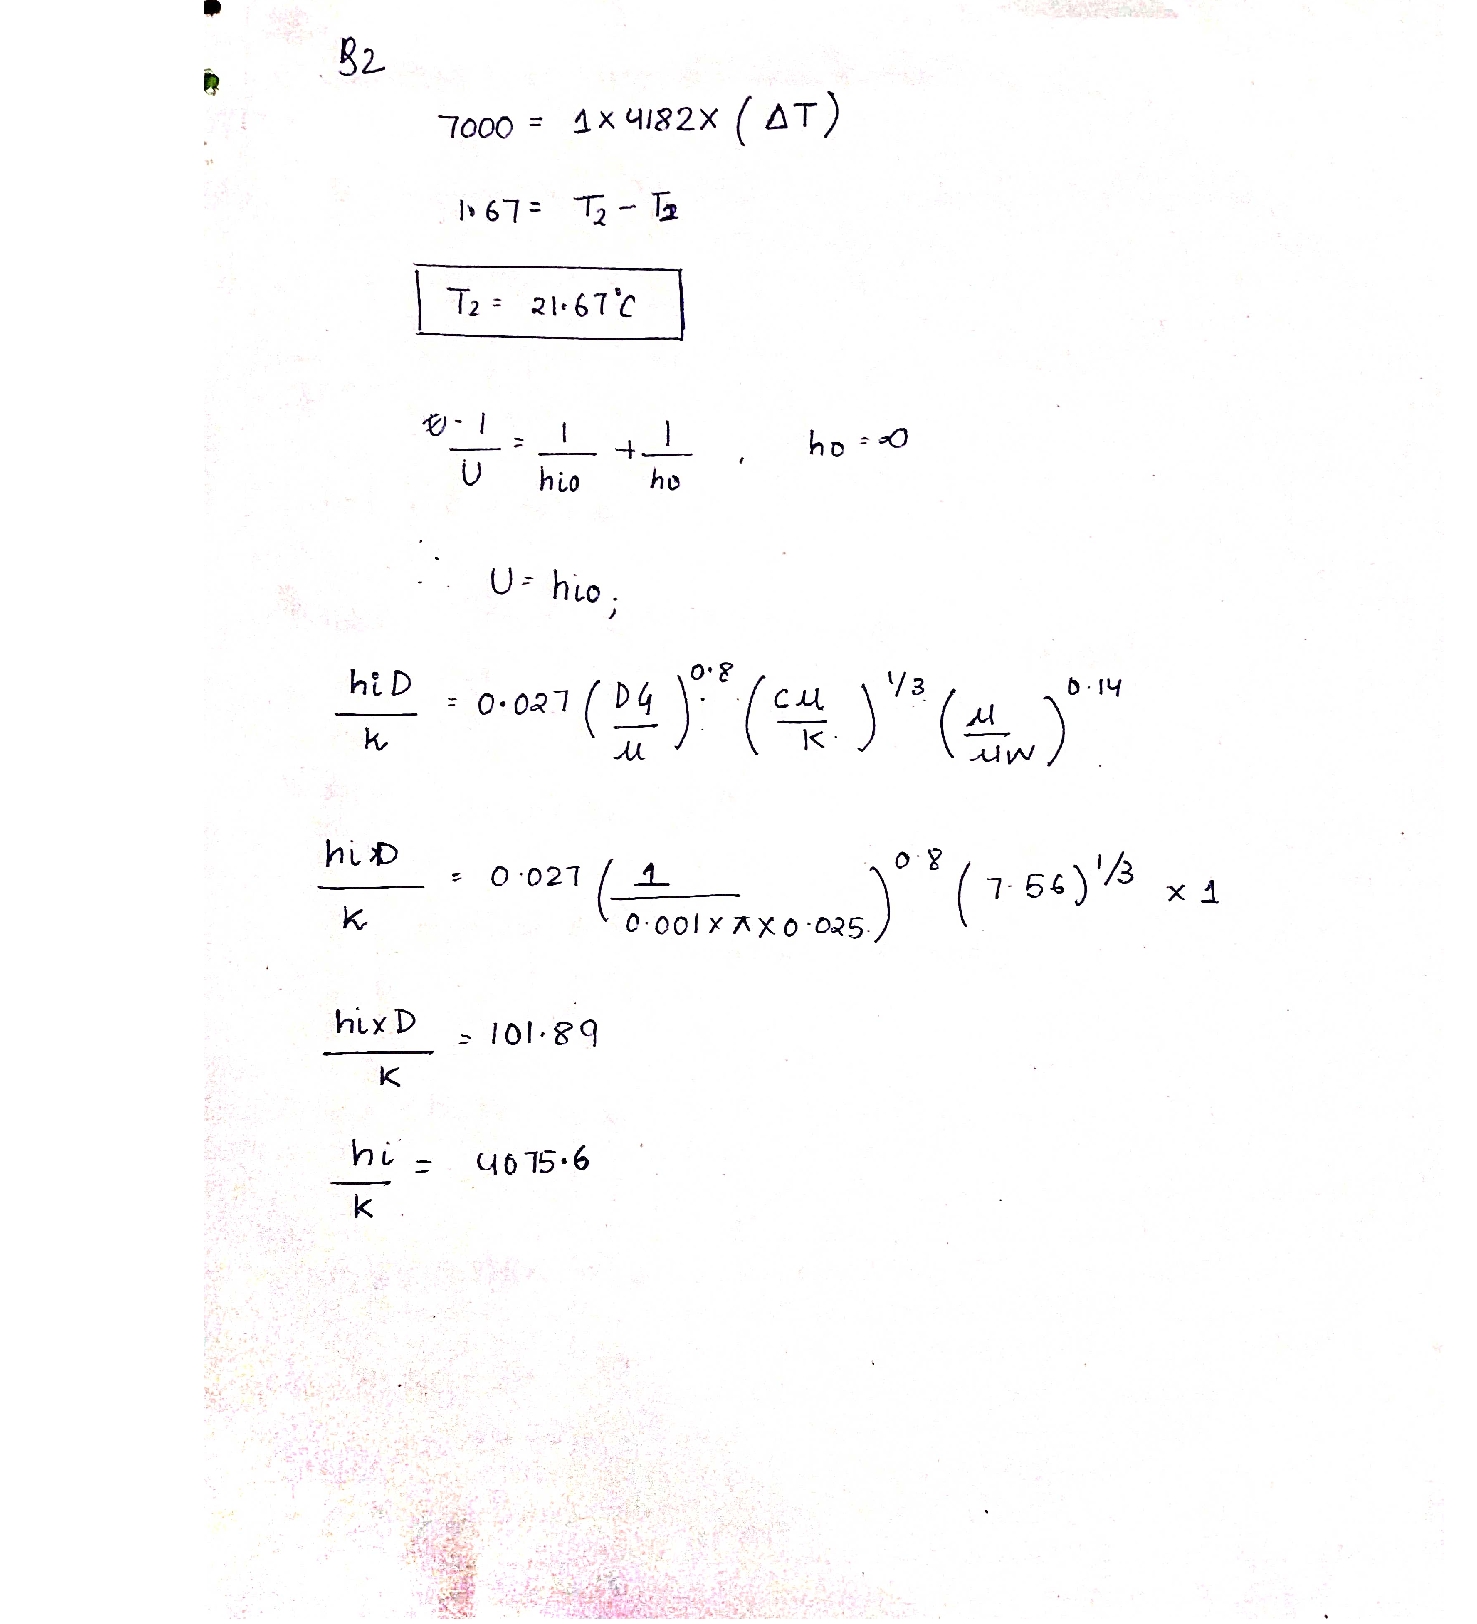 B2
7000 = 1 × 4182 × (ΔT)
1.67 = T2 - T2
T2 = 21.67°C
1/U = 1/hio + 1/ho , ho = ∞
∴ U = hio ;
hiD/k = 0.027 (DG/μ)^0.8 (cμ/K)^1/3 (μ/μw)^0.14
hi×D/K = 0.027 (1/0.001×π×0.025)^0.8 (7.56)^1/3 × 1
hi×D/K = 101.89
hi/K = 4075.6